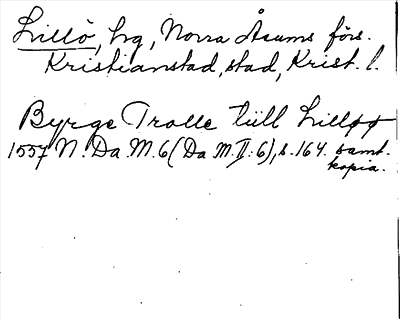 Lillö, hg, Norra Åsums förs.
Kristianstad, stad, Krist. l.
Byrge Trolle tiill Lilløø
1557 N. Da. M. 6 (Da M. II: 6), s. 164. samt.
kopia.